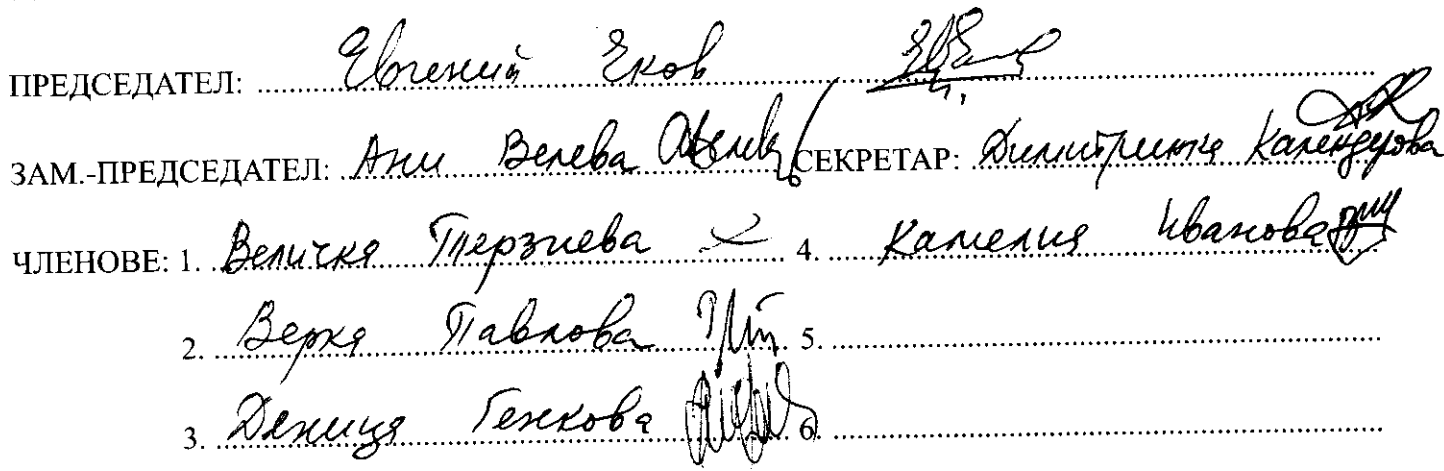 ПРЕДСЕДАТЕЛ: Евгений Еков
ЗАМ.-ПРЕДСЕДАТЕЛ: Ани Велева СЕКРЕТАР: Димитринка Календерова
ЧЛЕНОВЕ: 1. Величка Терзиева 4. Камелия Иванова
2. Верка Павлова 5.
3. Деница Генкова 6.